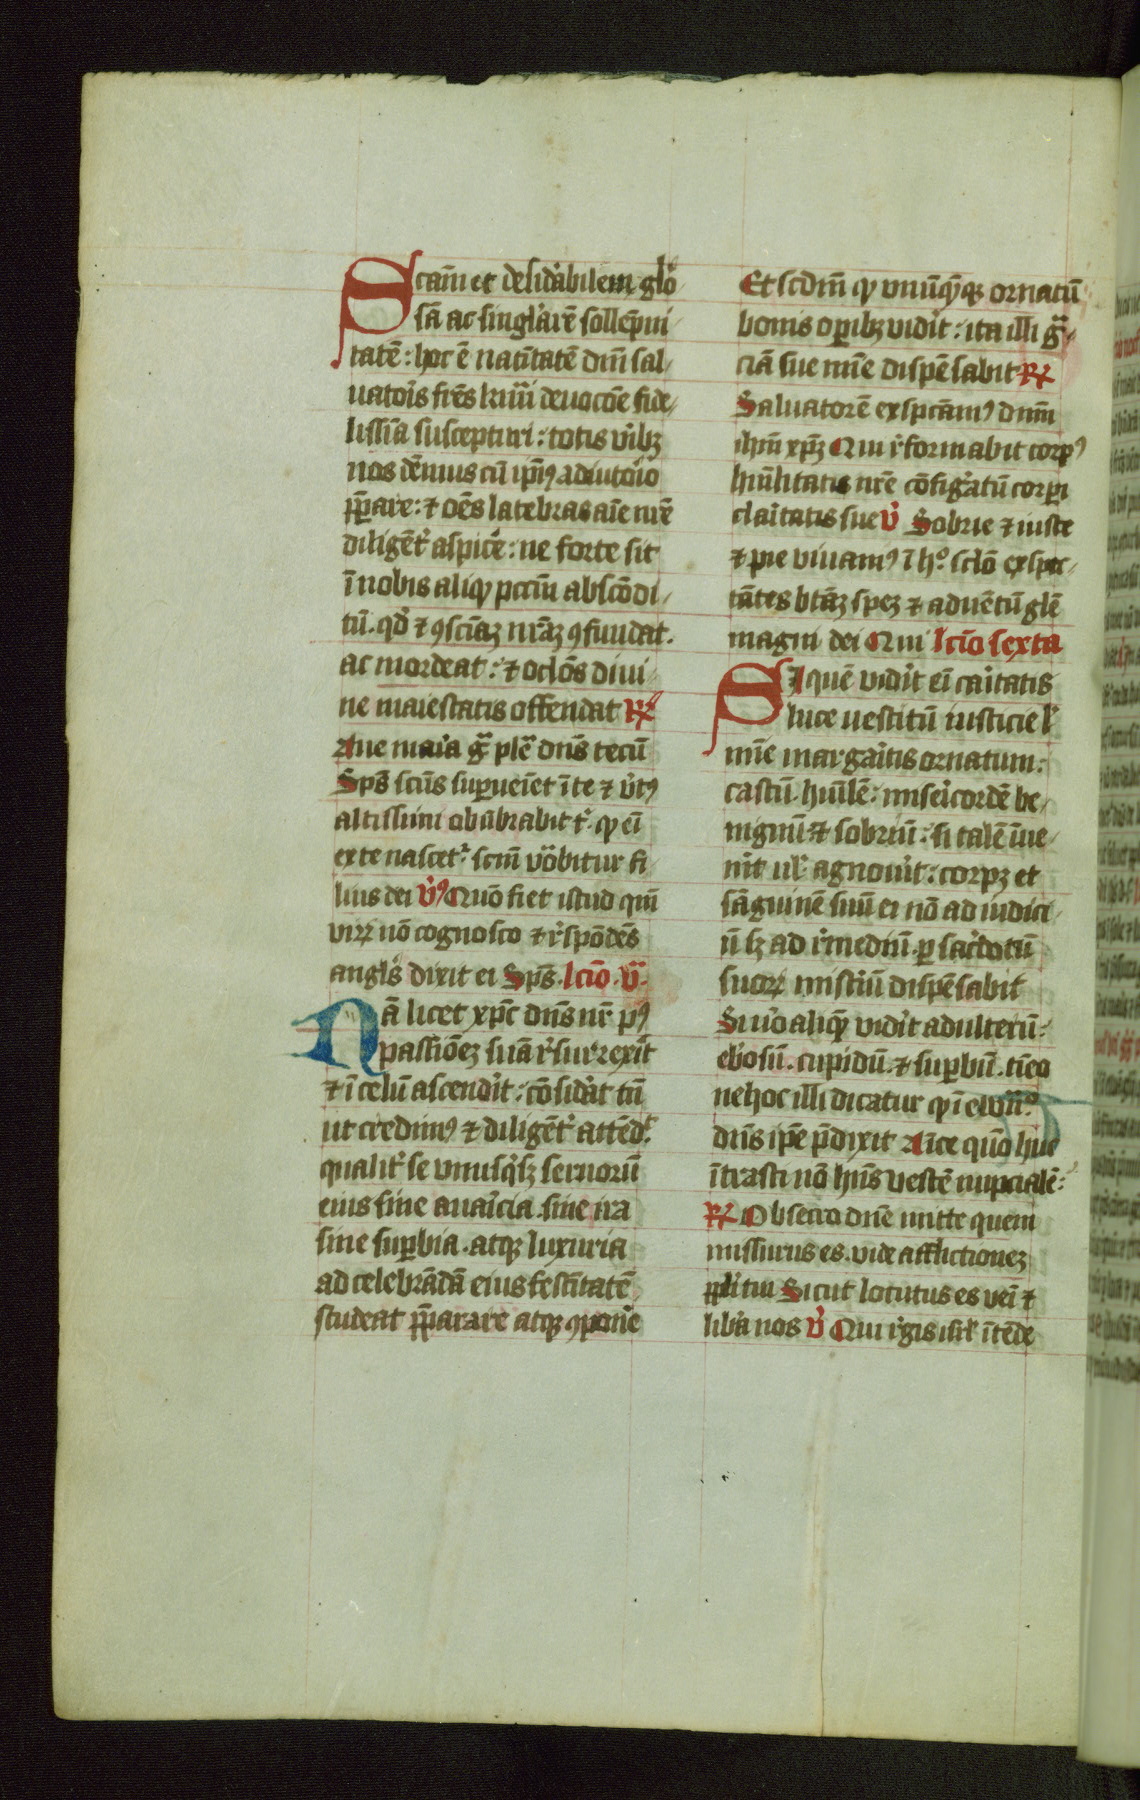 Scam̄ et desid̾abilem glō
sā ac singl̾arē sollēpni
tatē : hoc ē natītatē dm̄ sal
uatoīs frēs kmī deuocōe fide
lissīa suscepturi : totis vībꝫ
nos dēmus cū ip̄iꝰ adiutoīo
p̄parare : ⁊ oēs latebras aīe nr̄e
diligēt̾ aspic̾e : ne forte sit
ī nobis aliq̇ pccm̄ abscōdi
tū . qd̾ ⁊ ꝯsciāꝫ nr̄aꝫ ꝯfundat .
ac mordeat : ⁊ oclōs diui
ne maiestatis offendat ℟
Aue maīa gr̄ plē dn̄s tecū
Sps̄ scūs suꝑueīet ī te ⁊ v̾tꝰ
altissimi obūbrabit t̾ . q̇ eī
ex te nascet̾ scm̄ vōbitur fi
lius dei ℣ Quō fiet istud qm̄
virꝝ nō cognosco ⁊ r̾spōdēs
angl̾s dixit ei Sps̄ . lcīo . v̄ .
Nā licet xp̄c dn̄s nr̄ pꝰ
passiōeꝫ suā r̾surrexīt
⁊ ī celū ascend̾it : cōsid̾at tn̄
ut credimꝰ ⁊ diligēt̾ attēd̾t
qualit̾ se vnusq̇sꝫ seruorū
eius sine auaīcia . sine ira
sine suꝑbia . atqꝫ luxuria
ad celebrādā eius festītatē
studeat p̄parare atqꝫ ꝯpōne
Et scdm̄ q̇ vnūq̄qꝫ ornatū
bonis oꝑibꝫ vid̾it : ita illi gr̄
ciā sue mīe dispēsabit ℟
Saluatorē exspctam̾ꝰ dnm̄
ihm̄ xp̄ꝫ Qui r̾formabit corpꝰ
hūilitatis nr̄e cōfigr̾atū corꝑi
claītatis sue ℣ Sobrie ⁊ iuste
⁊ pie viuamꝰ ī h̊ sclō exspec
tātes btāꝫ speꝫ ⁊ aduētū glē
magni dei Qui lcīo sexta
SI quē vid̾it eī caītatis
luce uestitū iusticie l̾
mīe margaītis ornatum :
castū . hūilē : miseīcordē be
nignū ⁊ sobriū : si talē īue
nīt ul̾ agnouīt : corpꝫ et
sāguinē suū ei nō ad iudici
ū sꝫ ad r̾mediū . ꝑ sac̾dotū
suoꝝ mistīū dispēsabit
Si u̾o aliq̄ vid̾it adulterū :
eb̾osū . cupidū . ⁊ suꝑbū . tīeo
ne hoc illi dicatur q̇ ī ewn̄º
dn̄s ip̄e p̄dixit Aīce quō huc
ītrasti nō hn̄s vestē nupcialē :
℟ Obsecro dn̄e mitte quem
missurus es . vide afflictioneꝫ
ppl̾i tui Sicut locutus es veī ⁊
lib̾a nos ℣ Qui r̾gis isr̄l ītēde